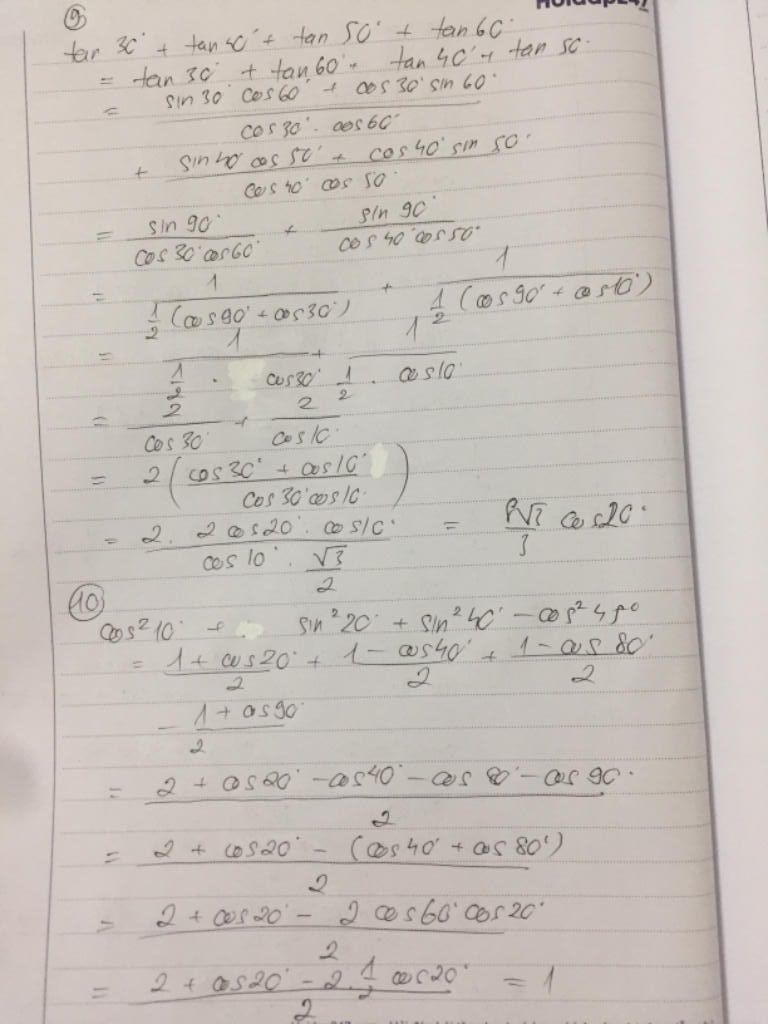 Hoidap247
9
tan 30° + tan 40° + tan 50° + tan 60°
= tan 30° + tan 60° + tan 40° + tan 50°
= (sin 30° cos 60° + cos 30° sin 60°) / (cos 30° . cos 60°)
+ (sin 40° cos 50° + cos 40° sin 50°) / (cos 40° cos 50°)
= sin 90° / (cos 30° cos 60°) + sin 90° / (cos 40° cos 50°)
= 1 / (1/2 (cos 90° + cos 30°)) + 1 / (1/2 (cos 90° + cos 10°))
= 1 / (1/2 . cos 30°) + 1 / (1/2 . cos 10°)
= 2 / cos 30° + 2 / cos 10°
= 2 ((cos 30° + cos 10°) / (cos 30° cos 10°))
= (2. 2 cos 20° . cos 10°) / (cos 10° . √3/2) = 8√3/3 cos 20°
10
cos² 10° + sin² 20° + sin² 40° - cos² 45°
= (1 + cos 20°)/2 + (1 - cos 40°)/2 + (1 - cos 80°)/2
- (1 + cos 90°)/2
= (2 + cos 20° - cos 40° - cos 80° - cos 90°)/2
= (2 + cos 20° - (cos 40° + cos 80°))/2
= (2 + cos 20° - 2 cos 60° cos 20°)/2
= (2 + cos 20° - 2. 1/2 cos 20°)/2 = 1